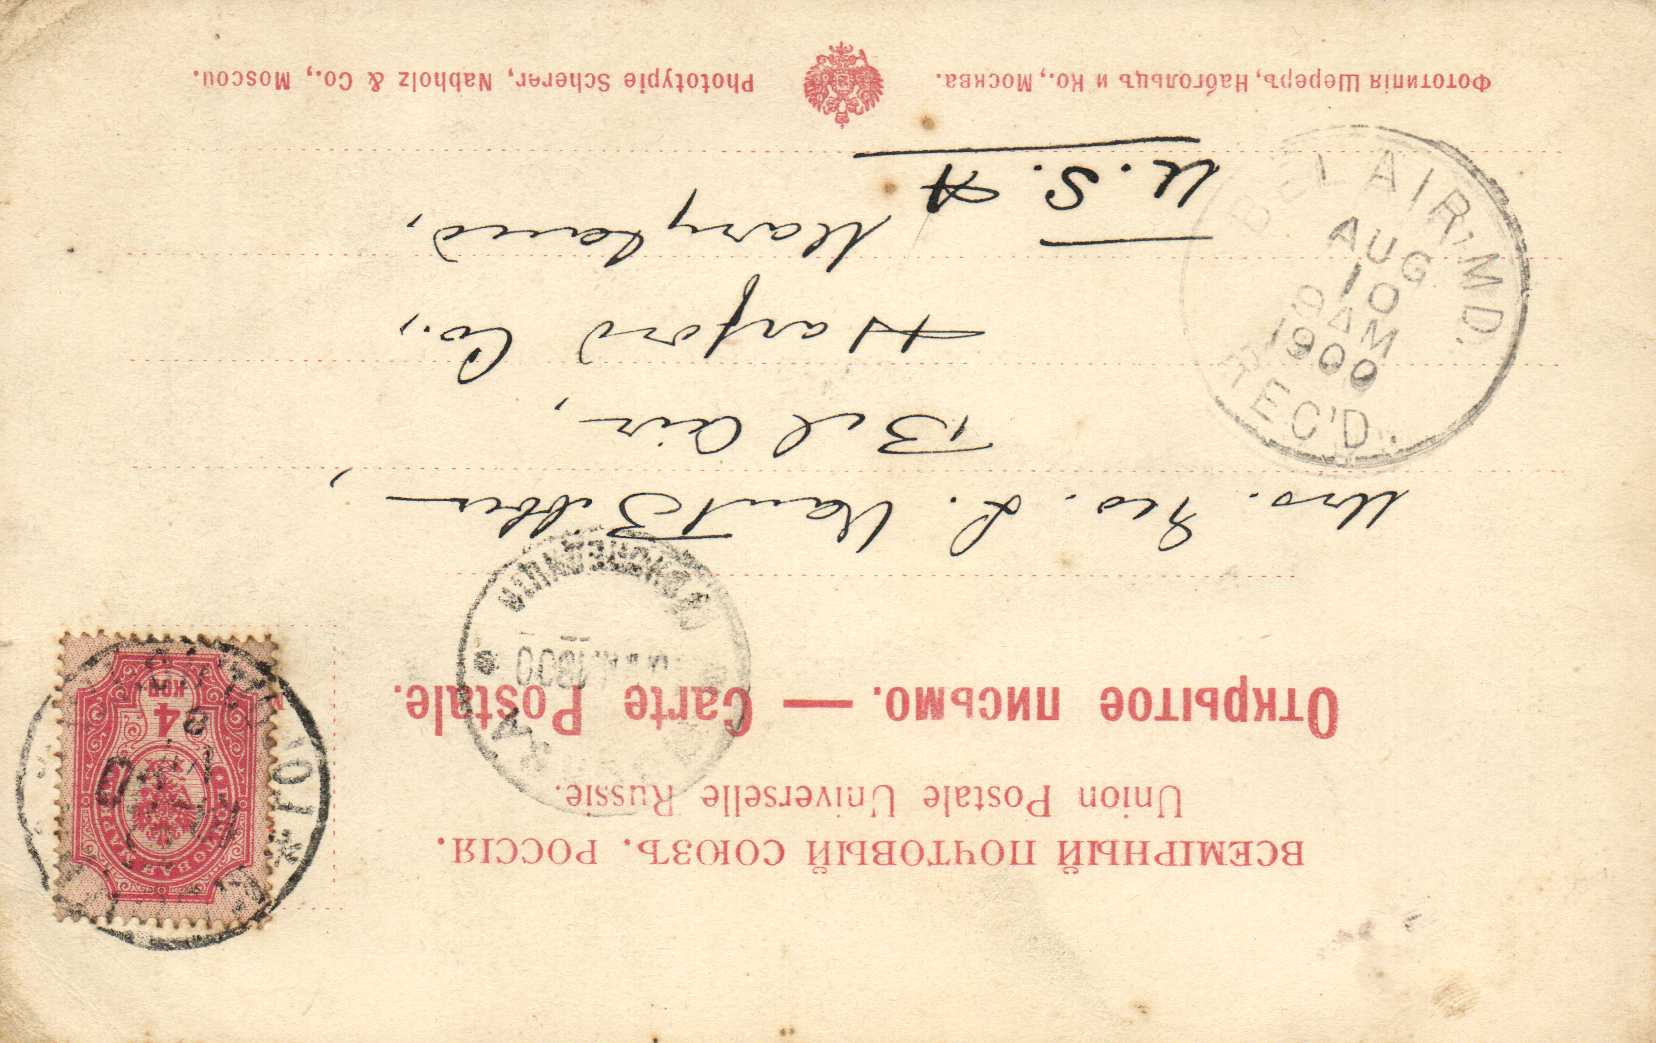 ВСЕМІРНЫЙ ПОЧТОВЫЙ СОЮЗЪ. РОССІЯ.
Union Postale Universelle Russie.
Открытое письмо. — Carte Postale.
4
КОП
1900
Mrs. Geo. L. Van Bibber,
Bel Air,
Harford Co.,
Maryland,
U.S.A
BEL AIR, MD.
AUG
10
9 AM
1900
REC'D.
Фототипія Шереръ, Набгольцъ и Ко., Москва.
Phototypie Scherer, Nabholz & Co., Moscou.